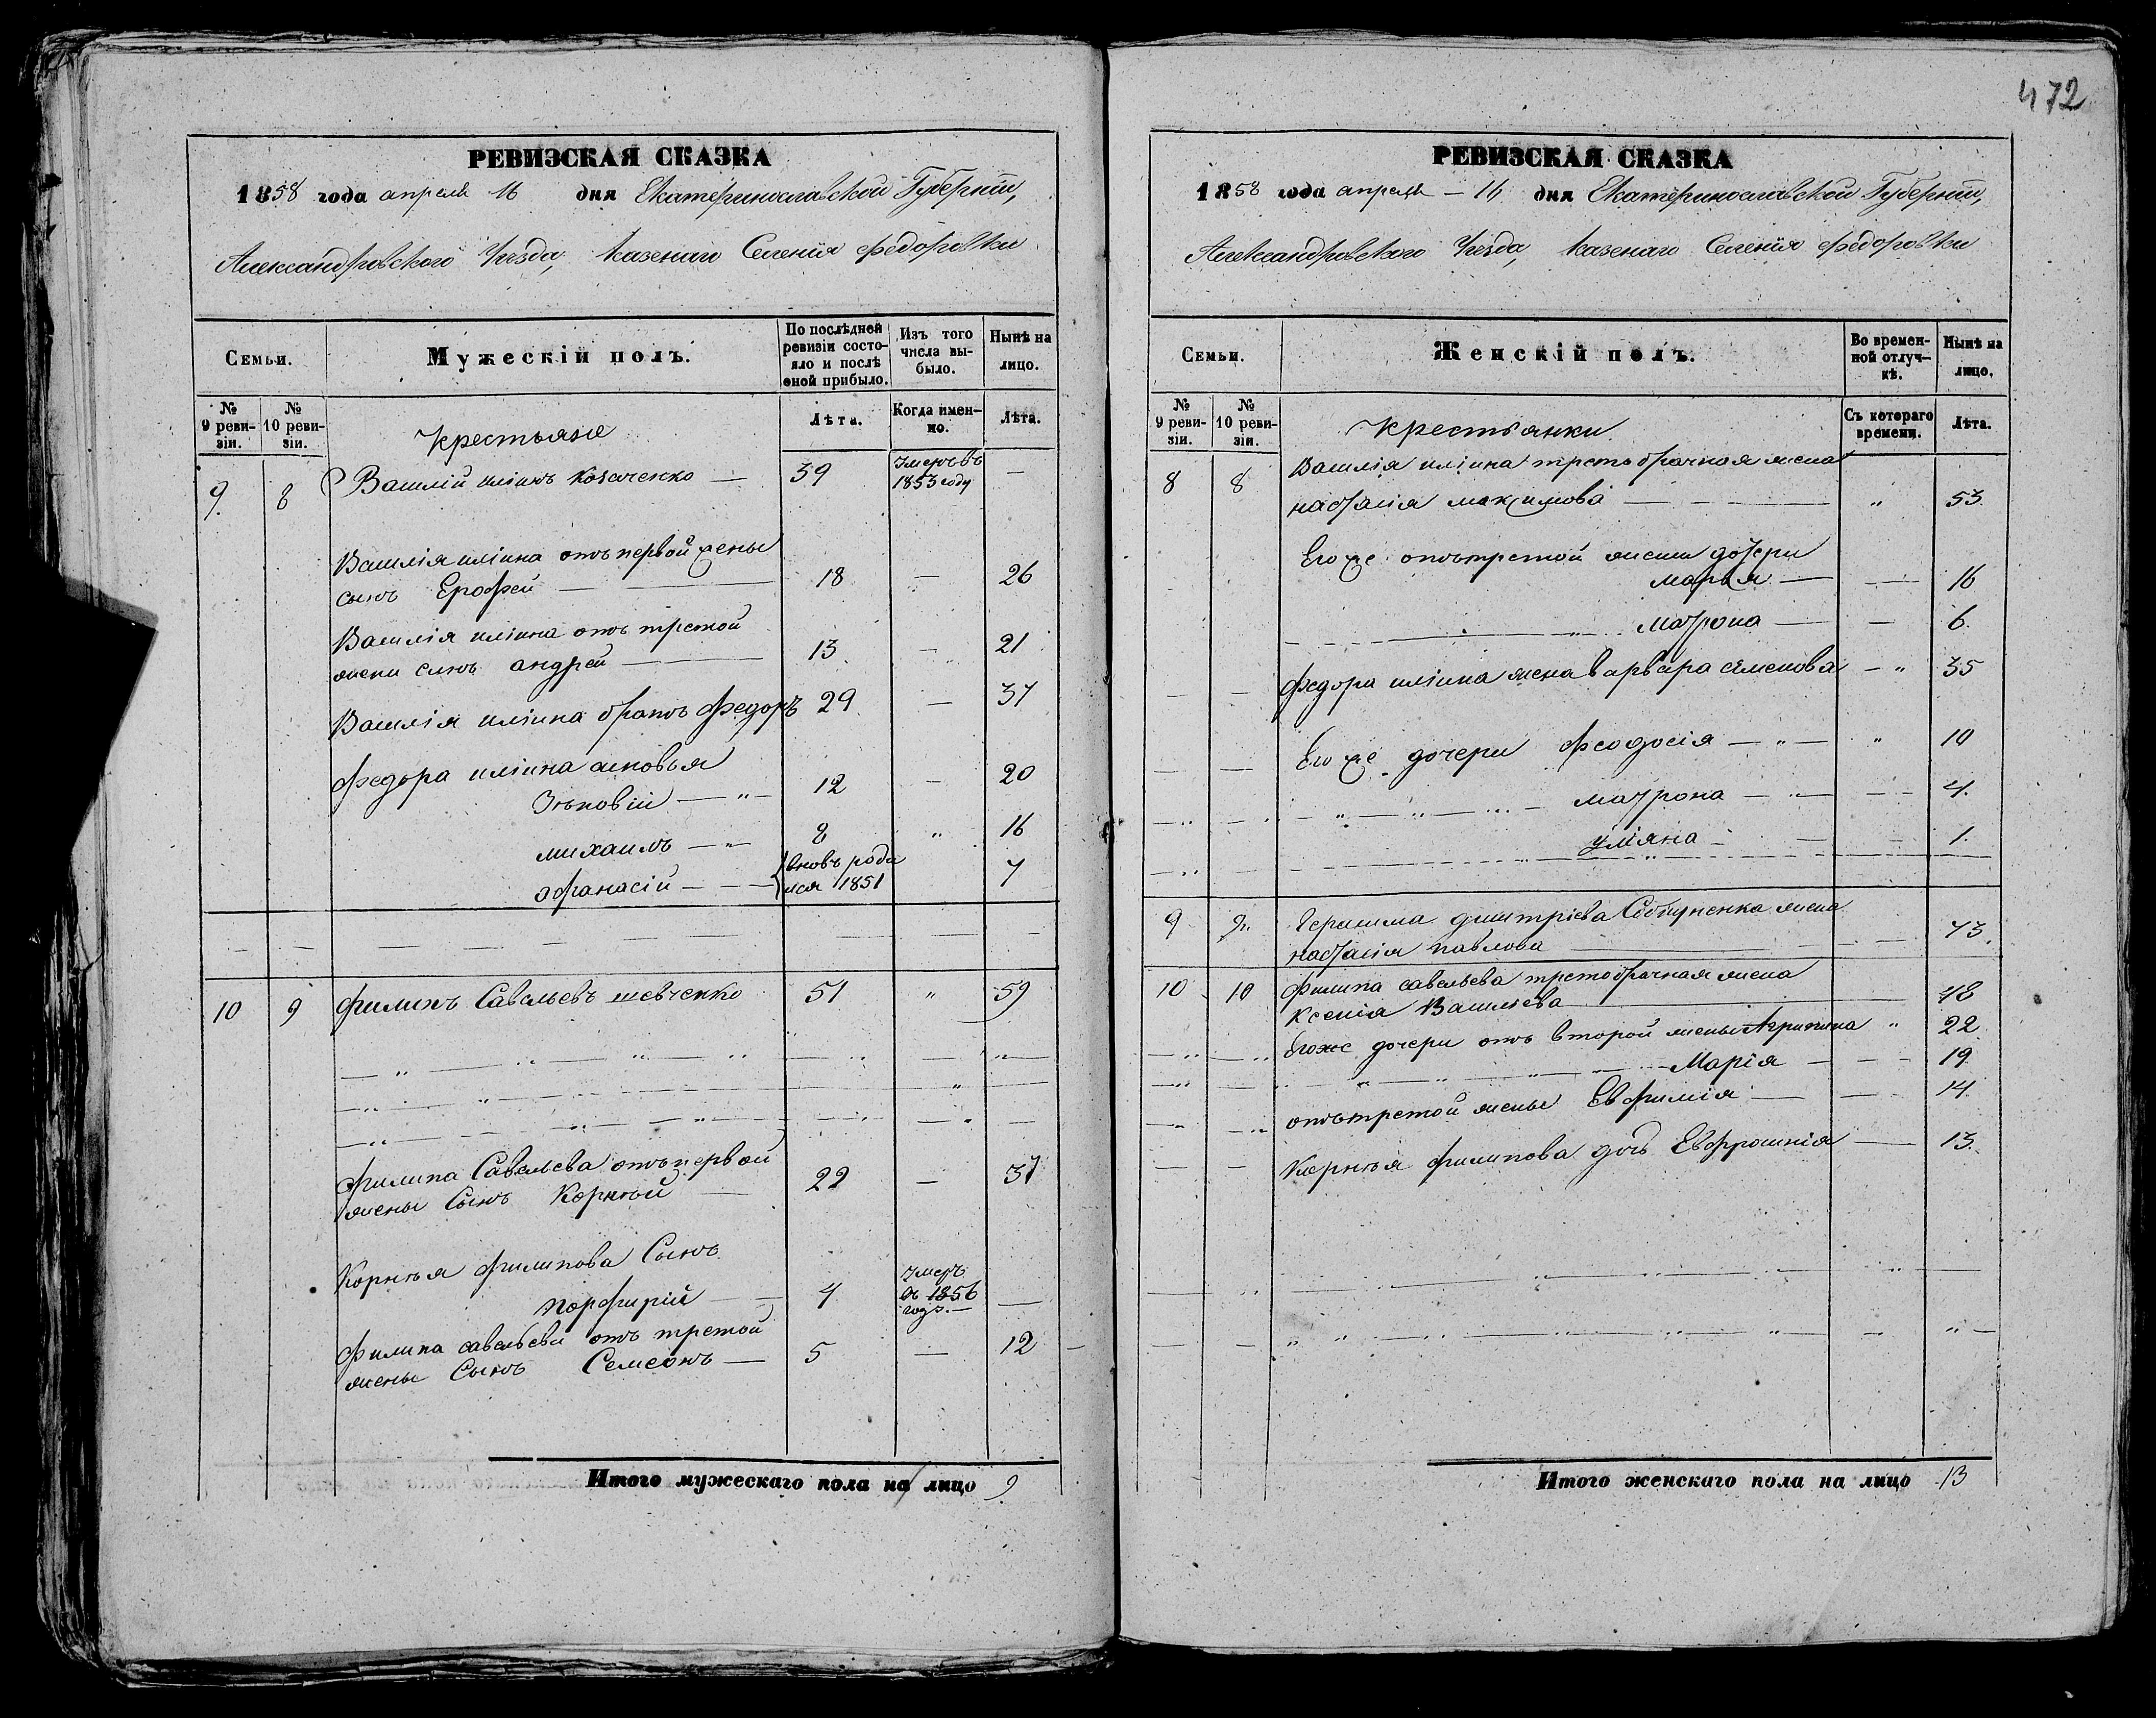 РЕВИЗСКАЯ СКАЗКА
1858 года апреля 16 дня Екатеринославской Губерніи,
Александровского Уѣзда, казенаго Селенія Федоровки
Семьи.
Мужескій полъ.
По послѣдней ревизіи состояло и послѣ оной прибыло.
Изъ того числа выбыло.
Нынѣ на лицо.
№ 9 ревизіи.
№ 10 ревизіи.
Крестьяне
Лѣта.
Когда именно.
Лѣта.
9. 8 Василій иліинъ Козаченко — 39 умеръ въ 1853 году —
Василія иліина отъ первой жены
сынъ Ерофей — 18 — 26
Василія иліина отъ третой
жени сынъ андрей — 13 — 21
Василія иліина братъ Федоръ 29 — 37
Федора иліина сыновья
Зѣновій — " — 12 — 20
михаилъ — " 8 " 16
афанасій — — — вновь роди лся 1851 7
10 9 Филипъ Савельевъ шевченко 51 " 59
Филипа Савельева отъ первой
жены Сынъ Корнѣй — 22 — 31
Корнѣя филипова Сынъ
порфирій — 4 умеръ въ 1856 годз. —
Филипа савельева отъ третой
жены Сынъ Семеонъ — 5 — 12 —
Итого мужескаго пола на лицо 9
472
РЕВИЗСКАЯ СКАЗКА
1858 года апреля — 16 дня Екатеринославской Губерніи,
Александровского Уѣзда, казенаго Селенія Федоровки
Семьи.
Женскій полъ.
Во временной отлучкѣ.
Нынѣ на лицо.
№ 9 ревизіи.
№ 10 ревизіи.
Крестьянки
Съ котораго времени.
Лѣта.
8 8 Василія иліина третобрачная жена
настасія максимова — " 53.
Его же отъ третой жени дочери
марья — — 16
матрона — — 6.
Федора иліина жена варвара семенова — " 35
Его же дочери Феодосія — " — " 10
матрона — " — — 4.
уліяна — — 1.
9 9. Герасима дмитріева жена
настасія павлова — 73.
10 10 Филипа савельева третобрачная жена
Ксенія Васильева — 48
Егоже дочери отъ второй жены Агрипина " 22
Марія — 19
отъ третой жены Евфимія — 14.
Корнѣя филипова дочь Евфросинія — 13.
Итого женскаго пола на лицо 13